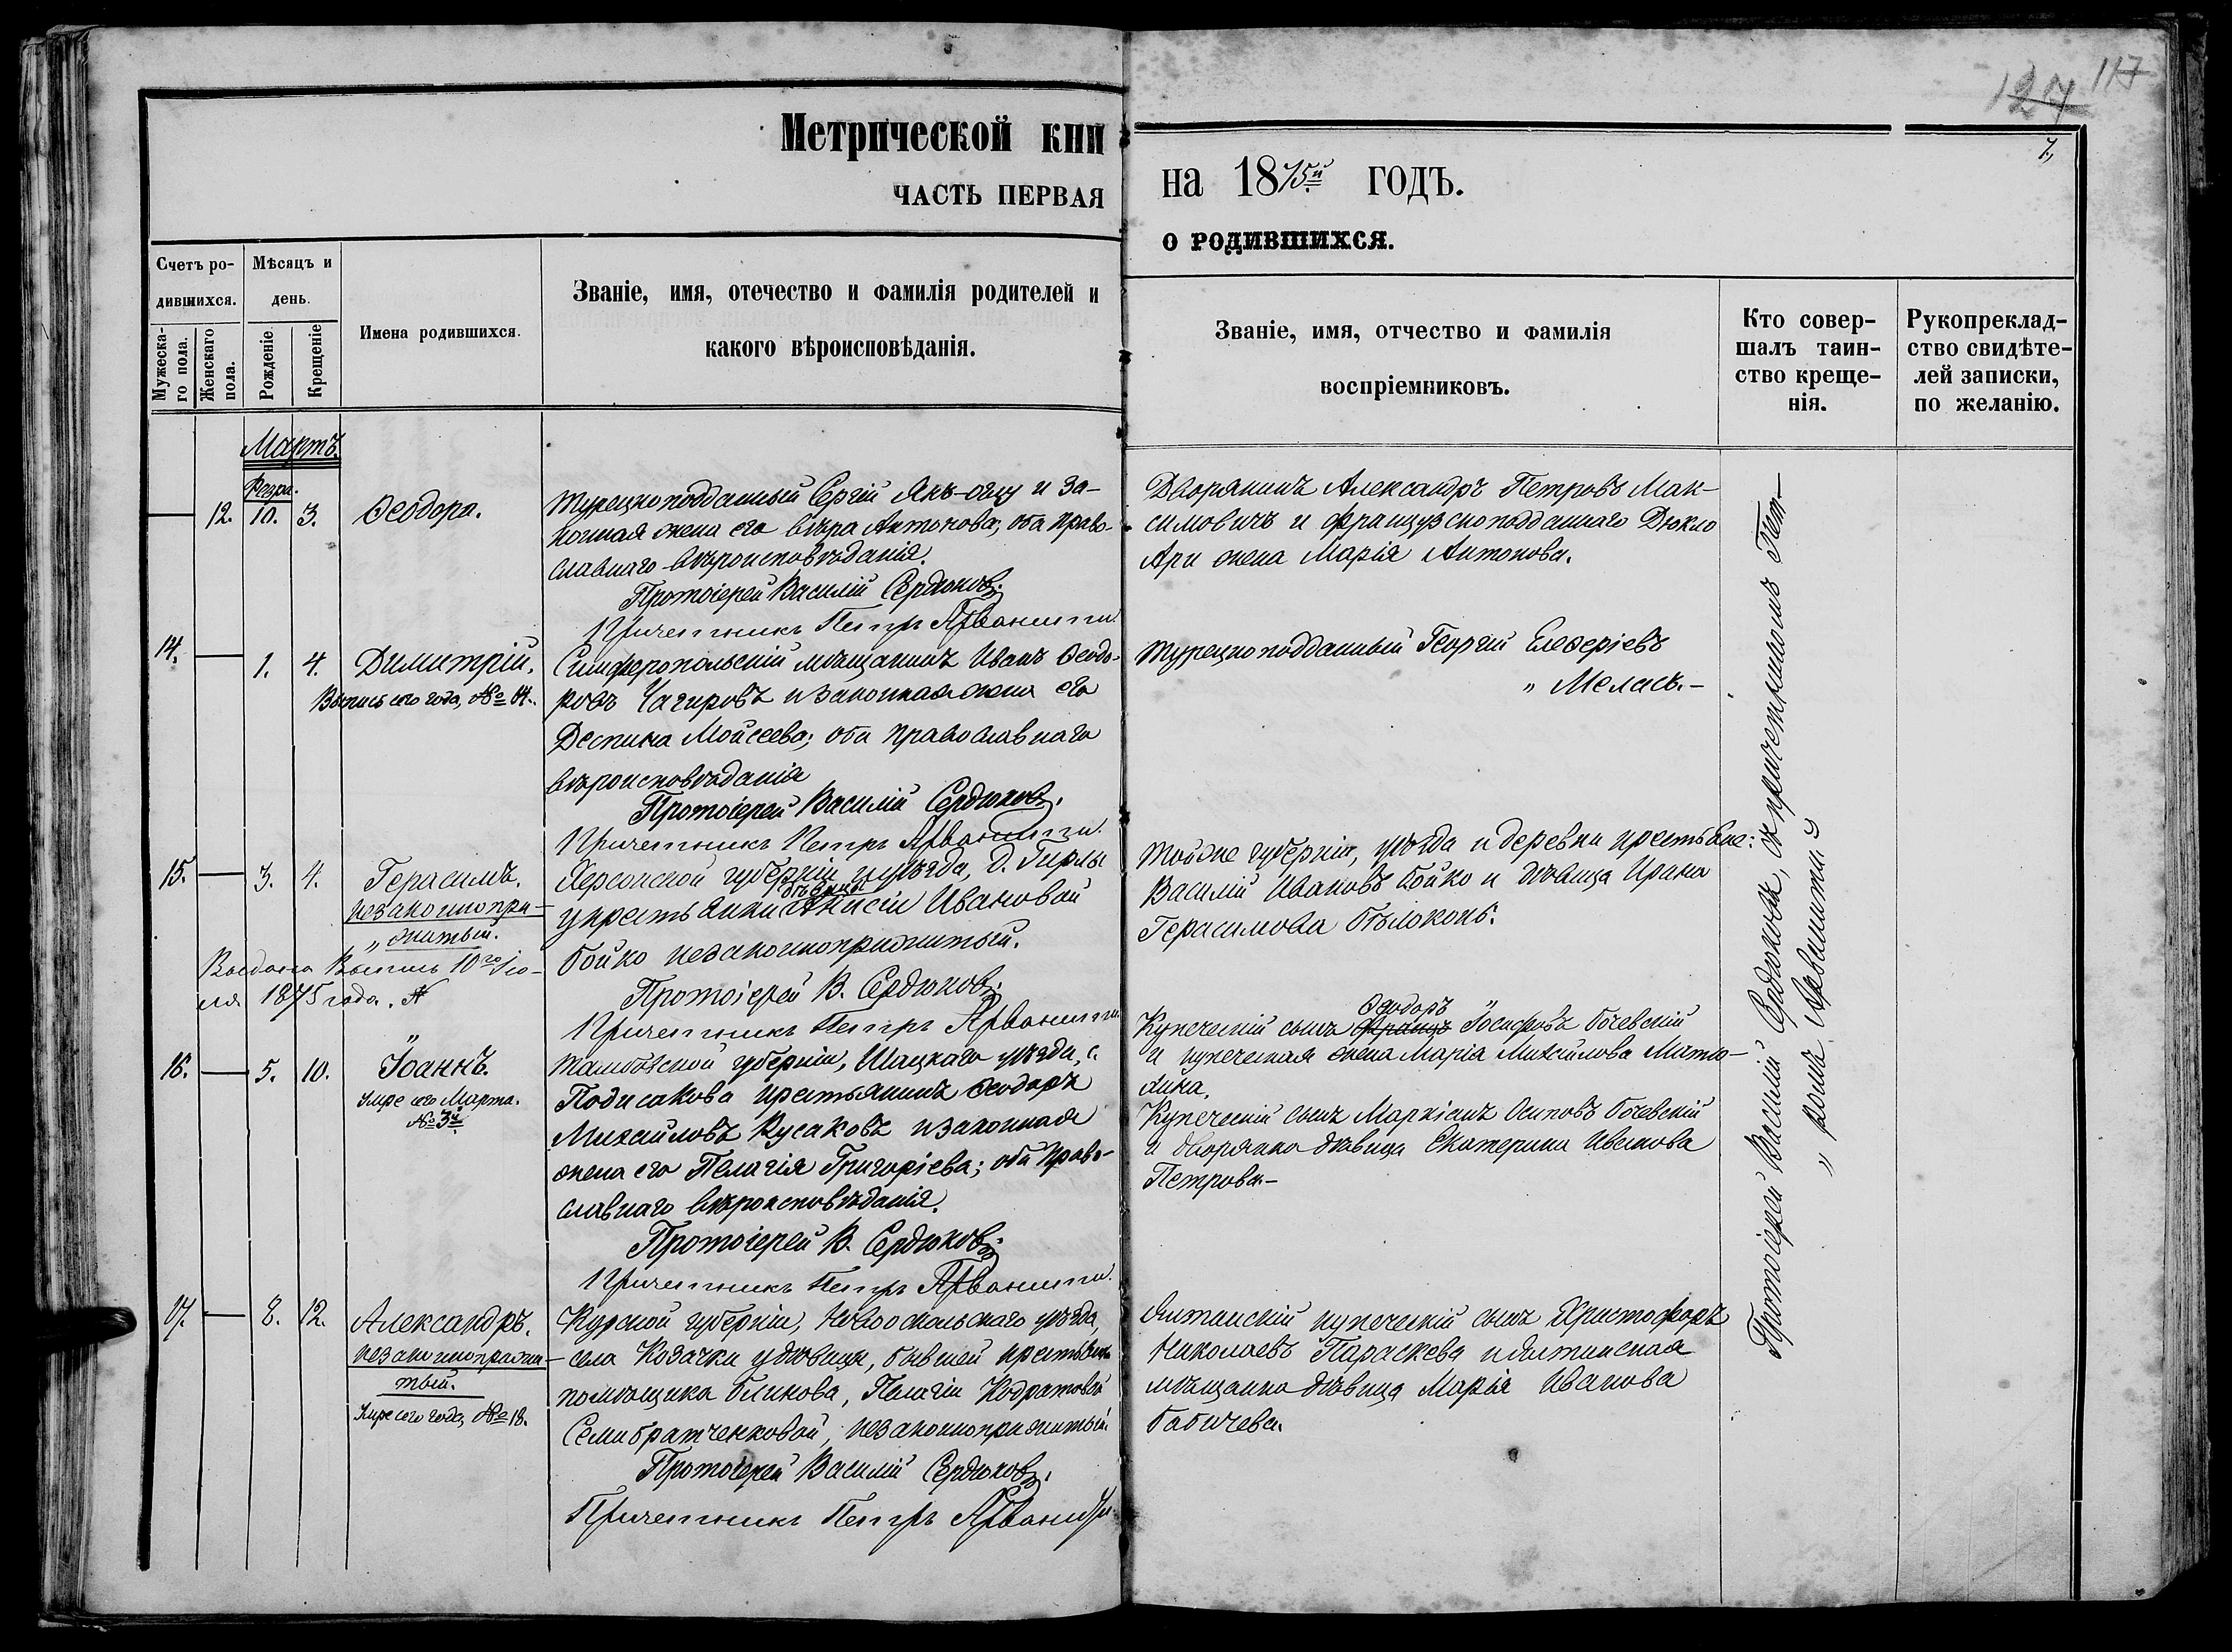 117
127
7.,
Метрической кни
ЧАСТЬ ПЕРВАЯ
на 1875й годъ.
о родившихся.
Счетъ ро-
дившихся.
Мѣсяцъ и
день.
Мужеска-
го пола.
Женскаго
пола.
Рожденіе
Крещеніе
Имена родившихся.
Званіе, имя, отечество и фамилія родителей и
какого вѣроисповѣданія.
Званіе, имя, отчество и фамилія
воспріемниковъ.
Кто совер-
шалъ таин-
ство креще-
нія.
Рукопреклад-
ство свидѣте-
лей записки,
по желанію.
Мартъ.
Февра.
12. 10. 3. Ѳеодора.
Турецкоподданный Сергій Якъ-оглу и за-
конная жена его Вѣра Антонова; оба право-
славнаго вѣроисповѣданія.
Протоіерей Василій Сердюковъ.
Причетникъ Петръ Арванити.
Дворянинъ Александръ Петровъ Мак-
симовичъ и французскоподданнаго Дюкло
Ари жена Марія Антонова.
14. 1. 4. Димитрій.
Выпись сего года, №
Симферопольскій мѣщанинъ Иванъ Ѳеодо-
ровъ Чагировъ и законная жена его
Деспина Мойсеева; оба православнаго
вѣроисповѣданія
Протоіерей Василій Сердюковъ.
Причетникъ Петръ Арванити.
Турецкоподданный Георгій Елеѳеріевъ
„ Меласъ.-
15. 3. 4. Герасимъ.
незаконнопри-
„ житый.
Выдана Выпись 10го Iю-
ля 1875 года. №
Херсонской губерніи и уѣзда, д. Гирлы
у крестьянки Ивановой
Бойко незаконноприжитый.
Протоіерей В. Сердюковъ.
Причетникъ Петръ Арванити
Тойже губерніи, уѣзда и деревни крестьяне:
Василій Ивановъ Бойко и дѣвица Ирина
Герасимова Бѣлоконь.
16. 5. 10. Іоаннъ.
Умре сего Марта.
№ 3й
Тамбовской губерніи, Шацкаго уѣзда, с.
Подисакова крестьянинъ Ѳеодоръ
Михайловъ Кусаковъ и законная
жена его Пелагія Григоріева; оба право-
славнаго вѣроисповѣданія.
Протоіерей В. Сердюковъ.
Причетникъ Петръ Арванити.
Ѳеодоръ
Купеческій сынъ Францъ Іосифовъ Бочевскій
и купеческая жена Марія Михайлова Митю-
хина.
Купеческій сынъ Маркіанъ Осиповъ Бочевскій
и дворянка дѣвица Екатерина Иванова
Петрова.-
17. 8. 12. Александръ.
незаконноприжи-
тый.
Умре сего года, № 18.
Курской губерніи, Новооскольскаго уѣзда,
села Козачки у дѣвицы, бывшей крестьянки
помѣщика Блинова, Пелагіи Кодратовой
Семибратченковой, незаконноприжитый
Протоіерей Василій Сердюковъ.
Причетникъ Петръ Арванити.
Ялтинскій купеческій сынъ Христофоръ
Николаевъ Параскева и ялтинская
мѣщанка дѣвица Марія Иванова
Бабичева.
Протоіерей Василій Сердюковъ, съ причетникомъ Пет-
„ ромъ Арваниттій